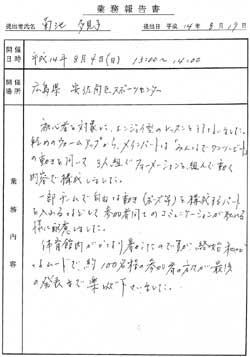 業務報告書
提出者氏名 菊池
提出日 平成 14年 8月 19日
開催日時 平成14年 8月 4日(日) 13:00~14:00
開催場所 広島県 安佐南区スポーツセンター
業務内容
初心者を対象に、エンジョイ型のレッスンを行いました。
軽めのウォームアップから、メインパートは
の動きを用いて 3人組でフォーメーションを組んで動く
内容で構成しました。
一部チームで自由な動き(ポーズ等)を構成するパート
を入れるなどして参加者同士のコミュニケーションが取れる
様に配慮しました。
体育館内がかなり暑かったのですが、終始 和やか
なムードで、約100名程の参加者の方々が最後
の発表まで楽しんで下さいました。